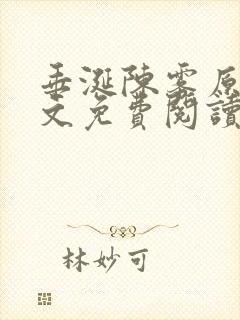 垂涎陳雾原
文免費閱讀
林妙可